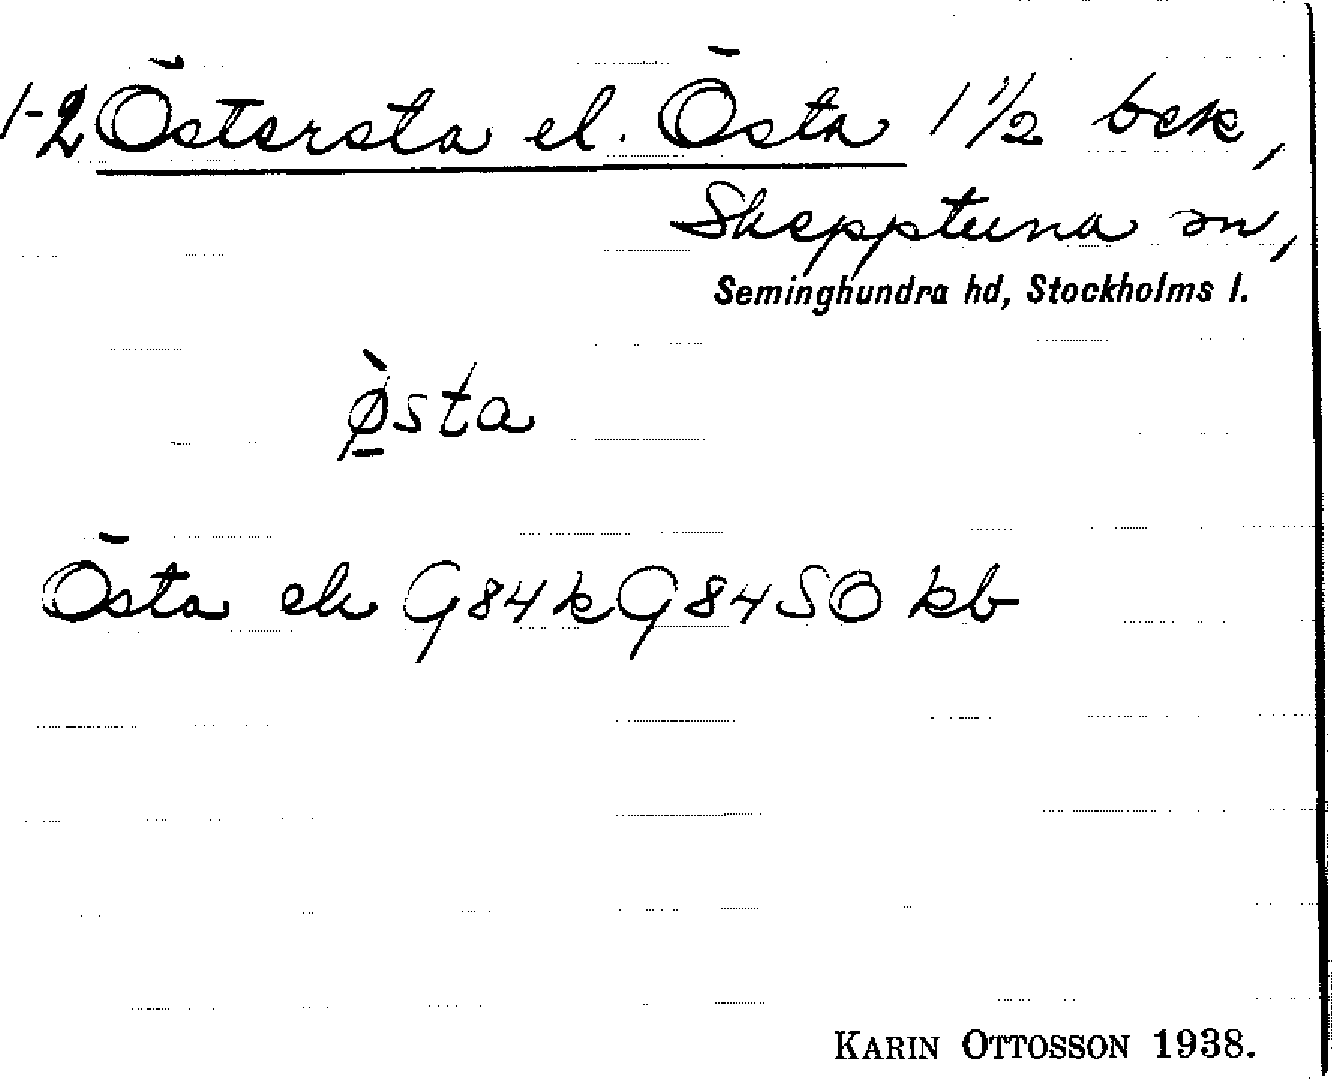 1-2 Östersta el. Östa 1 1/2 bek,
Skepptuna sn,
Seminghundra hd, Stockholms l.
ø̱̀sta
Östa ek G84k G84SO kb
KARIN OTTOSSON 1938.